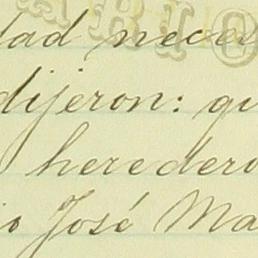 dad neces
dijeron: qu
heredero
io José Ma